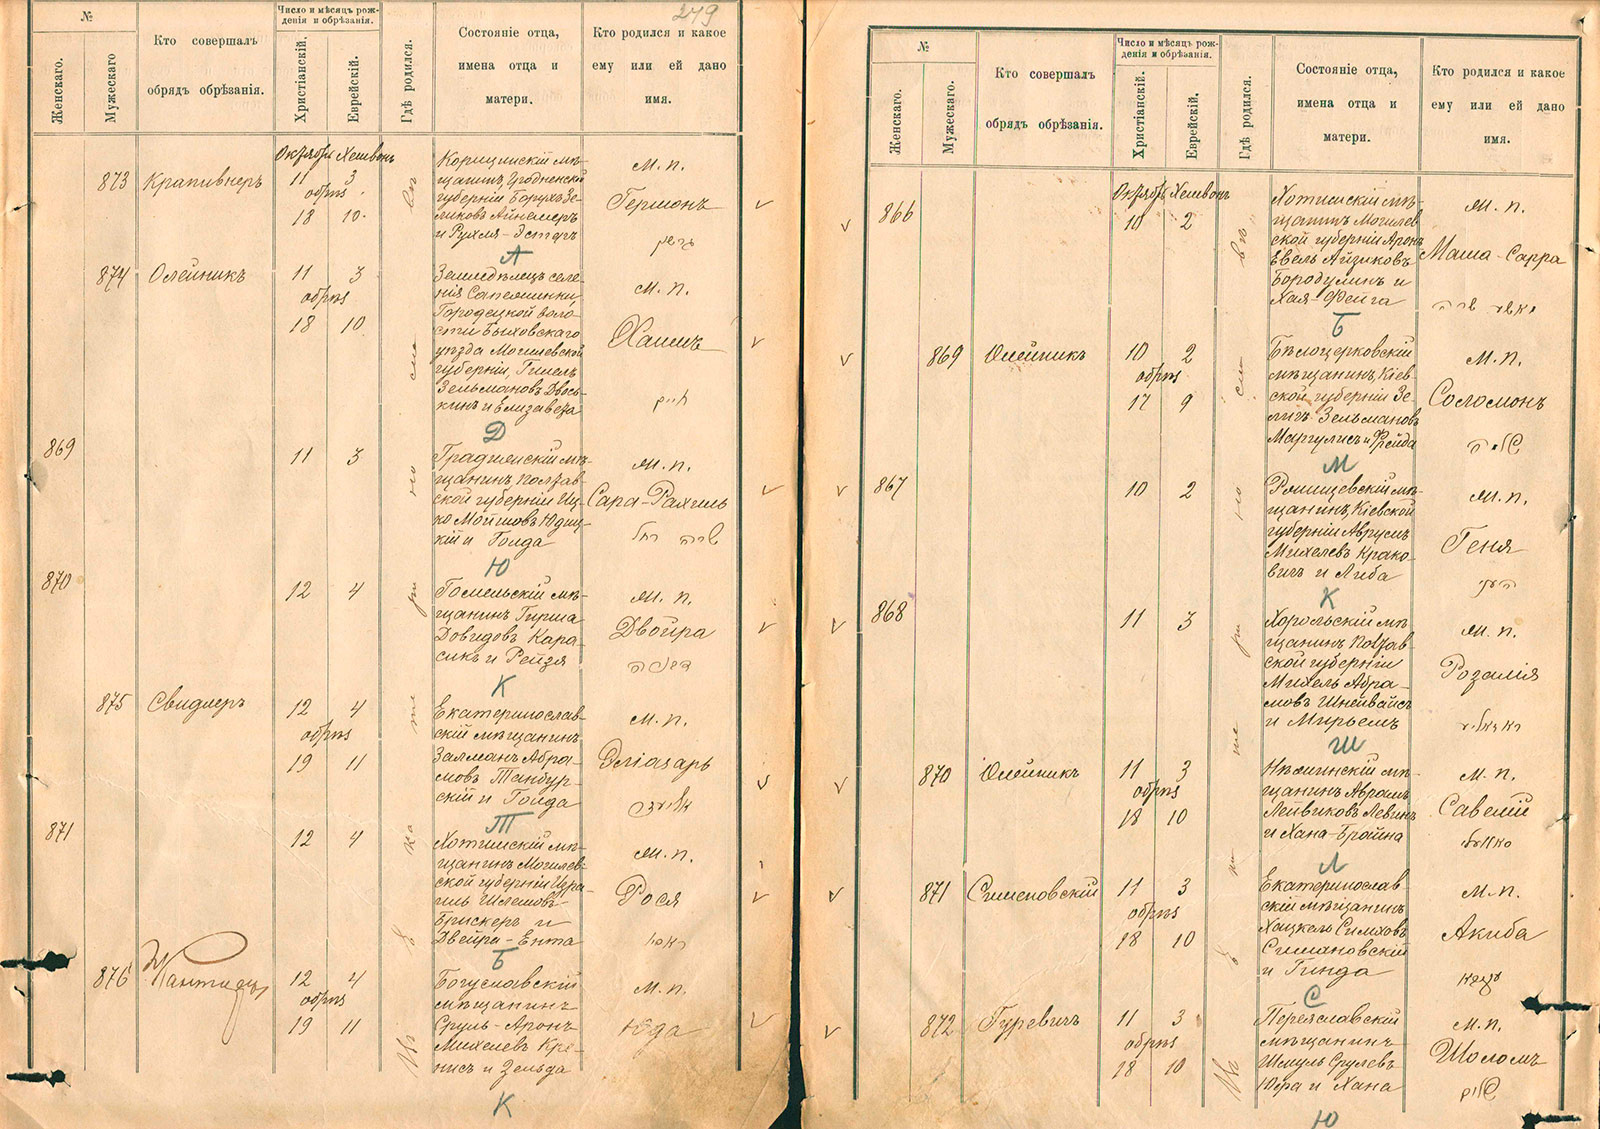 279
№
Женскаго.
Мужескаго
Кто совершалъ
обрядъ обрѣзанія.
Число и мѣсяцъ рож-
денія и обрѣзанія.
Христіанскій.
Еврейскій.
Гдѣ родился.
Состояніе отца,
имена отца и
матери.
Кто родился и какое
ему или ей дано
имя.
Октября Хешвонъ
873 Крапивнеръ 11 3
обрѣз
18 10
щанинъ, Гродненской
губерніи Борухъ Зе-
ликовъ
и Рухля-Эстеръ
м. п.
Германъ
А
874 Олейникъ 11 3
обрѣз
18 10
Земледѣлецъ селе-
нія
Городецкой воло-
сти Быховскаго
уѣзда Могилевской
губерніи, Гилель
Зельмановъ Двось-
кинъ и Елизавета
м. п.
Хаимъ
חיים
Д
869 11 3
Градижскій мѣ-
щанинъ Полтав-
ской губерніи Иц-
ко Мойшовъ Юдиц-
кій и Голда
м. п.
Сара-Рахиль
שרה רחל
Ю
870 12 4
Гомельскій мѣ-
щанинъ Гирша
Довидовъ Кара-
сикъ и Рейзя
м. п.
Двойра
К
875 Свидлеръ 12 4
обрѣз
19 11
Екатеринослав-
скій мѣщанинъ
Залманъ Абра-
мовъ Танхур-
скій и Голда
м. п.
Эліазаръ
Т
871 12 4
Хотимскій мѣ-
щанинъ Могилев-
ской губерніи Изра-
иль Шлемовъ
Брискеръ и
Двейра-Ента
м. п.
Рося
Б
876 12 4
обрѣз
19 11
Богуславскій
мѣщанинъ
Сруль-Аронъ
Михелевъ Кре-
нисъ и Зельда
м. п.
Юда
К
№
Женскаго.
Мужескаго.
Кто совершалъ
обрядъ обрѣзанія.
Число и мѣсяцъ рож-
денія и обрѣзанія.
Христіанскій.
Еврейскій.
Гдѣ родился.
Состояніе отца,
имена отца и
матери.
Кто родился и какое
ему или ей дано
имя.
Октябрь Хешвонъ
866 10 2
Хотимскій мѣ-
щанинъ Могилев-
ской губерніи Аронъ
Евель Айзиковъ
Бородулинъ и
Хая-Фейга
м. п.
Маша-Сарра
מאשע שרה
Б
869 Олейникъ 10 2
обрѣз
17 9
Бѣлоцерковскій
мѣщанинъ, Кіев-
ской губерніи Зе-
ликъ Зельмановъ
Маргулисъ и Фрейда
м. п.
Соломонъ
שלמה
М
867 10 2
щанинъ, Кіевской
губерніи Аврумъ
Михелевъ Крако-
вичъ и Либа
м. п.
Геня
К
868 11 3
Хорольскій мѣ-
щанинъ Полтав-
ской губерніи
Михель Абра-
мовъ Шнейвайсъ
и Мирьемъ
м. п.
Розалія
Ш
870 Олейникъ 11 3
обрѣз
18 10
Нѣжинскій мѣ-
щанинъ Аврамъ
Лейвиковъ Левинъ
и Хана-Бройна
м. п.
Савелій
Л
871 Сименовскій 11 3
обрѣз
18 10
Екатеринослав-
скій мѣщанинъ
Хацкель Симховъ
Симановскій
и Гинда
м. п.
Акиба
עקיבא
С
872 Гуревичъ 11 3
обрѣз
18 10
Переяславскій
мѣщанинъ
Шмуль Срулевъ
Юфа и Хана
м. п.
Шоломъ
שלום
Ю